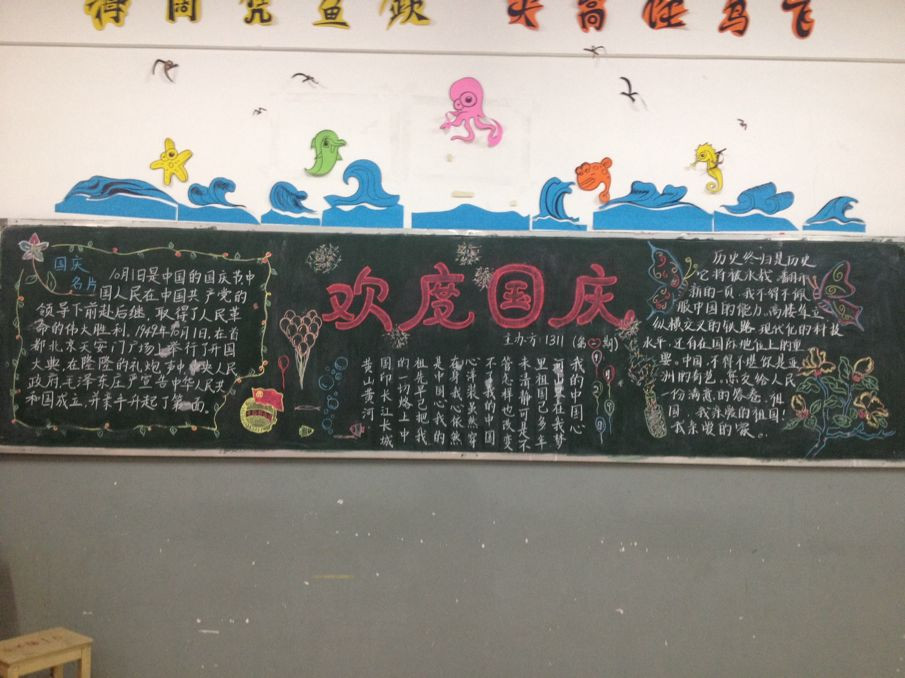 海阔凭鱼跃 天高任鸟飞
国庆
名片
10月1日是中国的国庆节,中
国人民在中国共产党的
领导下前赴后继,取得了人民革
命的伟大胜利,1949年10月1日,在首
都北京天安门广场举行了开国
大典,在隆隆的礼炮声中,中央人民
政府毛泽东庄严宣告中华人民共
和国成立,并亲手升起了第一面。
欢度国庆
主办方:1311(第二期)
我的中国心
河山在我梦
里祖国已多年
未清静可是不
管怎样也改变
不了我的中国
心洋装虽然穿
在身我心依然
是中国心我的
祖先早已把我
的一切烙上中
国印长江长城
黄山黄河
历史终归是历史
它将被永载,翻开
新的一页,我不得不佩
服中国的能力,高楼耸立
纵横交叉的铁路,现代化的科技
水平,还有在国际地位上的重
要,中国,不得不说你是亚
洲的角色,你交给人民
一份满意的答卷,祖
国,我亲爱的祖国!
我亲爱的家。